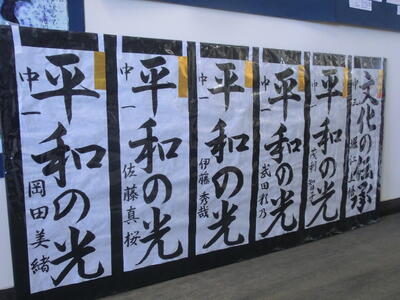 平和の光
中一
岡田美緒
平和の光
中一
佐藤真桜
平和の光
中一
伊藤秀哉
平和の光
中一
武田
平和の光
中一
文化の伝承
中